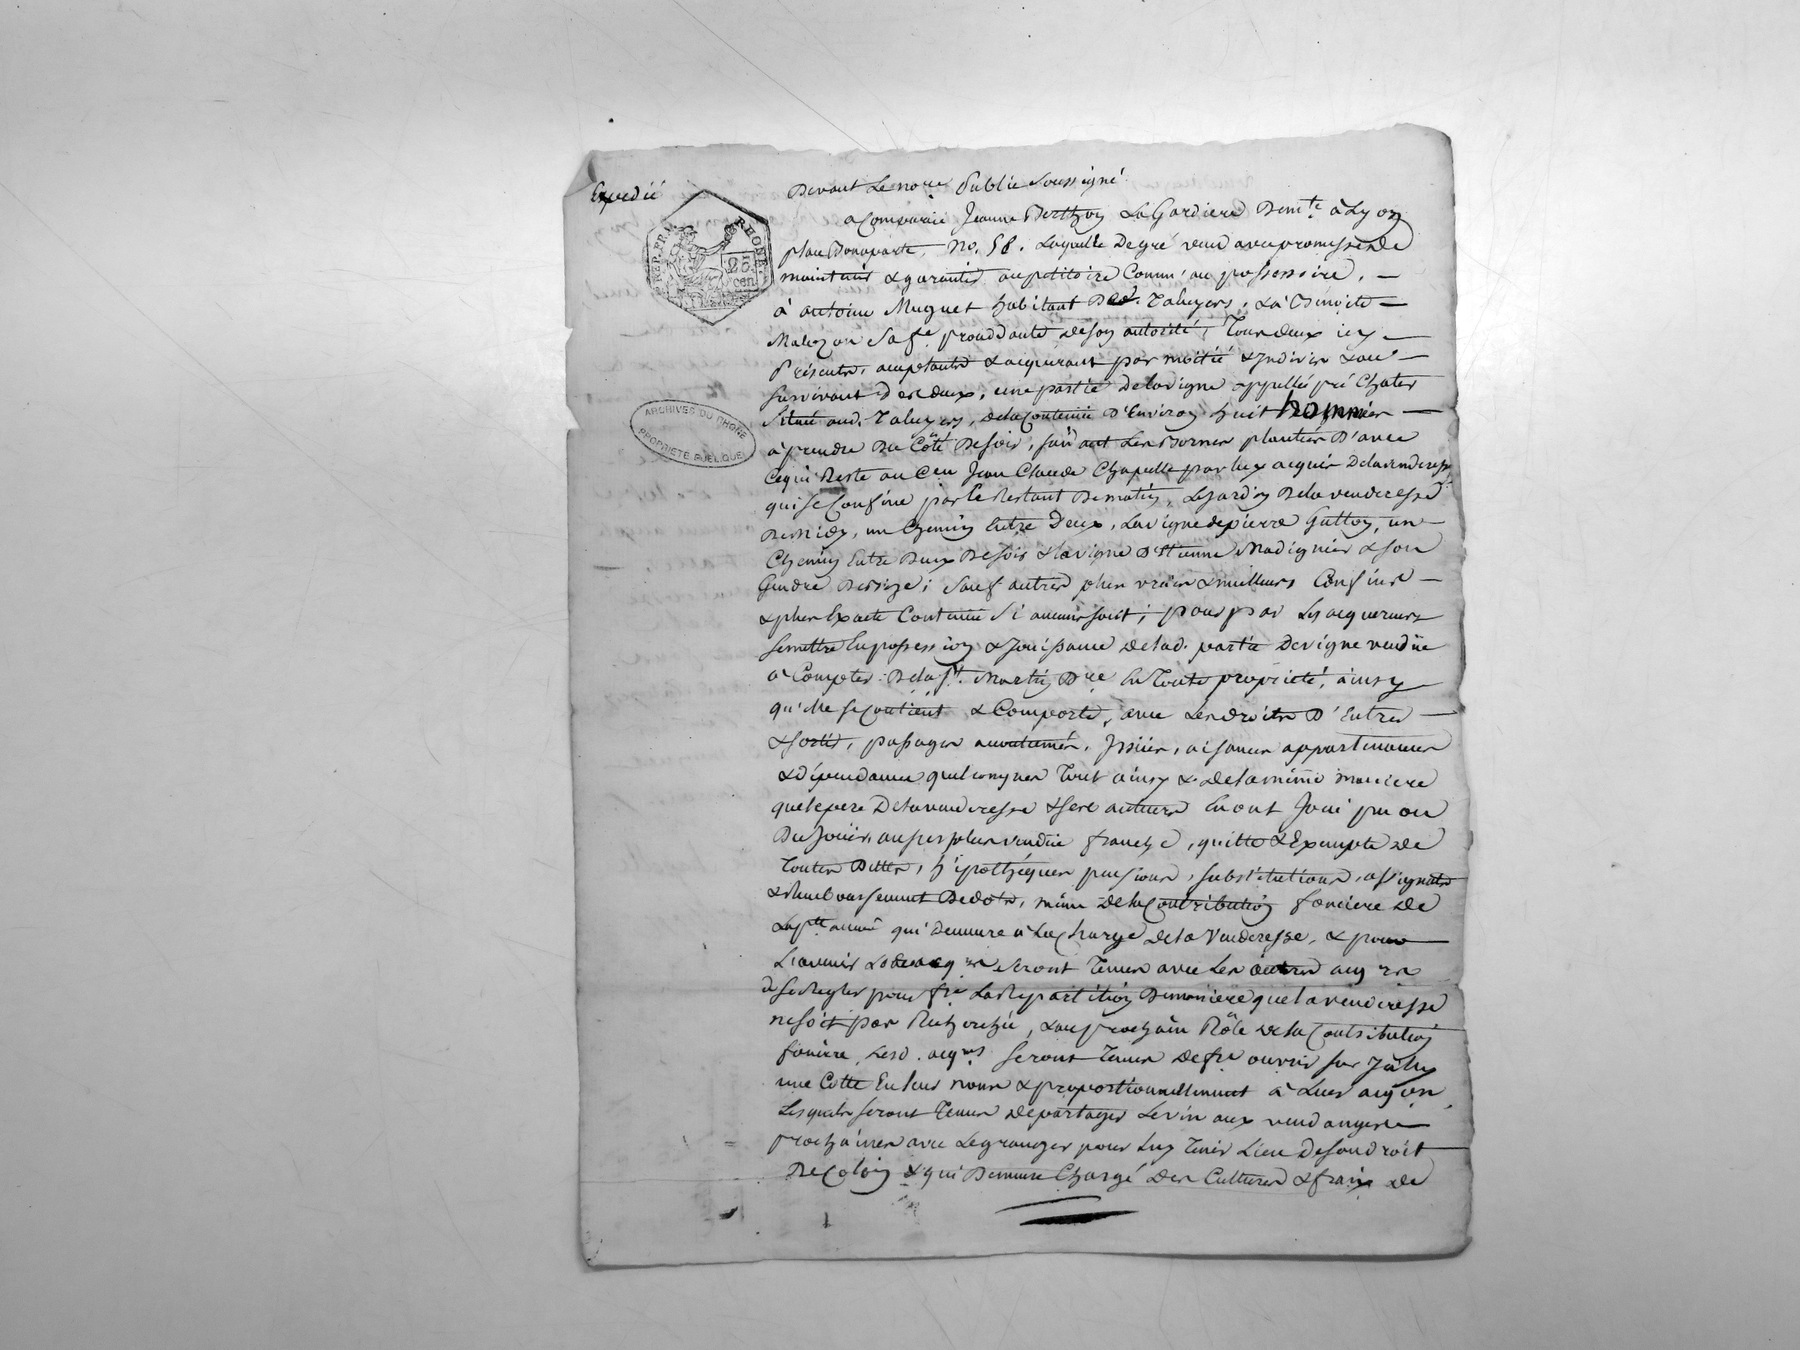 Expedié
REP. FRA. RHONE.
25 cen
ARCHIVES DU RHÔNE
PROPRIÉTÉ PUBLIQUE
Devant Le no.re Public Soussigné
a Comparüe Jeanne Berthoy La Gardiere Dem.te à Lyon
place Bonaparte, No. 58. Laquelle De gré vend avec promesse de
maintenir & garantir au petitoire Comm' au possessoire, —
à antoine Muguet habitant Dud. Taluyers, & à Benoite —
sa f.e procédante de son autorité, Tous deux icy —
présents, acceptants & acquérant par moitié & Indivis & au —
survivant d'es deux, une partie de la vigne appellée pré Chater
Située aud. Taluyers, de la Contenüe D'Environ huit hommées —
à prendre Du Côté De soir, suivant Les Bornes plantées D'avec
Ce qui Reste au C.en Jean Claude Chapelle par luy acquis De la venderesse
qui se Confine par le Restant De matin, Le jardin De la venderesse
De midy, un Chemin Entre Deux, La vigne de pierre Guttoy, un
Chemin Entre Deux De soir & la vigne D'Etienne Madignier & son
Gendre De bize; Sauf autres plus vrais & meilleurs Confins —
& plus Exacte Contenüe Si aucuns sont; pour par Les acquereurs
se mettre En possession & Jouissance de lad. partie De vigne vendüe
à Compter De la S.t Martin D.re En Toute propriété, ainsy
qu'elle se Contient & Comporte, avec Les droits D'Entrée —
& sortie, passages accoutumés, Issües, aisances appartenances
& dépendances quelconques Tout ainsy & De la même maniere
que le pere De la venderesse & ses auteurs En ont Joui pu ou
Du Jouir, au surplus vendüe franche, quitte & Exempte de
Toutes Dettes, h'ipothéques pensions, substitutions, assignats
& Remboursement De dots, même De la Contribution fonciere de
La p.nte année qui Demeure à La Charge De la Venderesse, & pour
L'avenir Les d. acq.rs Seront Tenus avec Les autres acq.rs
de se Regler pour f.re La Repartition De maniere que la venderesse
ne soit pas Recherchée, & au prochain Rôle De la Contribution
fonciere Lesd. acq.rs Seront Tenus De f.re ouvrir sur Icelluy
une Cotte En leur nom & proportionnellement à Leur acq.on,
Lesquels seront Tenus De partager Le vin aux vendanges
prochaines avec Le granger pour Luy Tenir Lieu De son droit
De Colon & qui Demeure Chargé Des Cultures & frais De